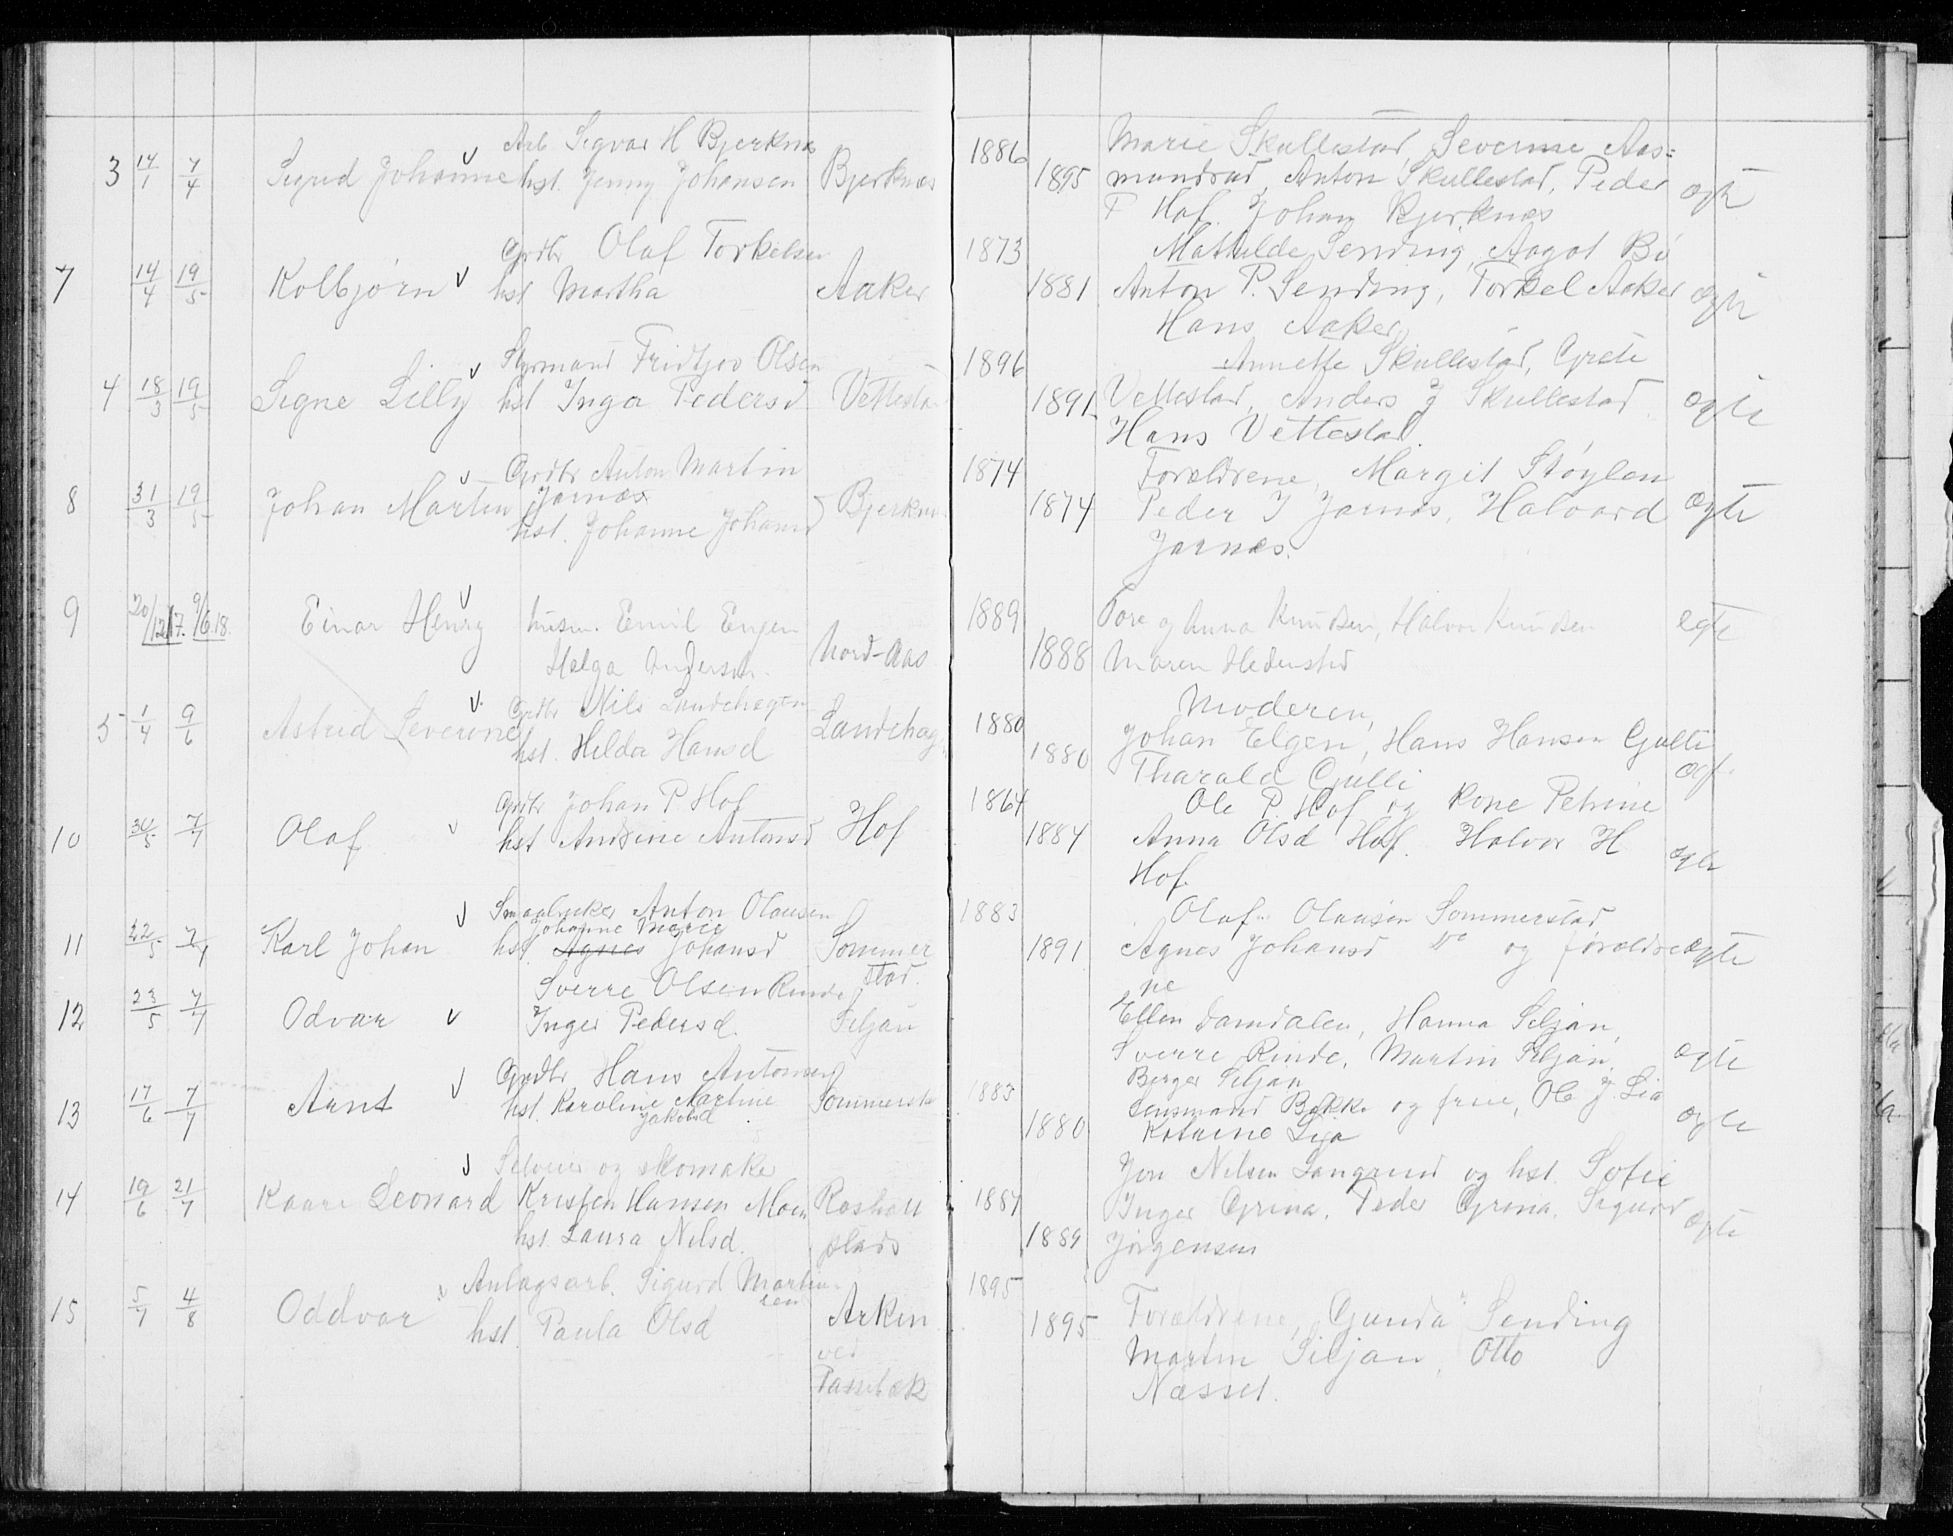 3 14/1 7/4 Sigrid Johanne v Arb Sigvar H Bjerknæs
hst. Jenny Johansen Bjerknæs
1886 Marie Skullestad, Severine Aas=
1895 mundrud, Anton Skullestad, Peder ægte
F Hof. Johan Bjerknæs
7 14/4 19/5 Kolbjørn v Grdbr Olaf Torkelsen
hst Martha Aaker
1873 Mathilde Sending, Aagot Bö
1881 Anton P. Sending, Torkel Aaker ægte
Hans Aaker
4 18/3 19/5 Signe Lilly v Styrmand Fridtjov Olsen
hst Inga Pedersd Vettestad
1896 Annette Skullestad, Grete
1891 Vettestad, Anders J Skullestad ægte
Hans Vettestad.
8 31/3 19/5 Johan Martin v Grdbr Anton Martin
Jarnæs
hst. Johanne Johansd Bjerknæs
1874 Forældrene, Margit Støylen
1874 Peder J Jarnæs, Halvard ægte
Jarnæs.
9 20/12 17. 9/6 18. Einar Henry v husm. Emil Engen
Helga Andersen. Nord-Aas
1889 Tore og Anna Knudsen, Halvor Knudsen egte
1888 Maren Hedenstad
5 1/4 9/6 Astrid Severine v. Grdbr Nils Landehagen
hst. Hilda Hansd Landehag.
1880 Moderen,
1880 Johan Elgen, Hans Hansen Gulli
Tharald Gulli ægt.
10 30/5 7/7 Olaf v Grdbr Johan P. Hof
hst Andrine Antonsd Hof
1864 Ole P. Hof og kone Petrine
1884 Anna Olsd Hof. Halvor H ægte
Hof.
11 22/5 7/7 Karl Johan v Smaabruker Anton Olausen
Johanne Marie
hst. Agnes Johansd Sommer
stad.
1883 Olaf Olausen Sommerstad
1891 Agnes Johansd do og foreldre ægte
ne
12 23/5 7/7 Odvar v Sverre Olsen Rinde
Inger Pedersd. Siljan
Ellen Damdalen, Hanna Siljan,
Sverre Rinde, Martin Siljan, ægte
Birger Siljan
13 17/6 7/7 Arnt v Grdbr Hans Antonsen
hst. Karoline Martine Sommerstad
Jakobsd.
1883 Lensmand Bakke og frue, Ole J. Lia
1880 Katrine Lia ægte
14 19/6 21/7 Kaare Leonard v Selveier og skomaker
Kristen Hansen Moen
hst. Laura Nilsd. plads
Jon Nilsen Langrud og hst. Sofie
1887 Inger Grina. Peder Grina. Sigurd ægte
1889 Jørgensen
15 5/7 4/8 Oddvar v Anlægsarb. Sigurd Martin
sen
hst. Paula Olsd Arken
ved
Passebæk
1895
1895 Forældrene, Gunda Sending
Martin Siljan, Otto
Næsset.